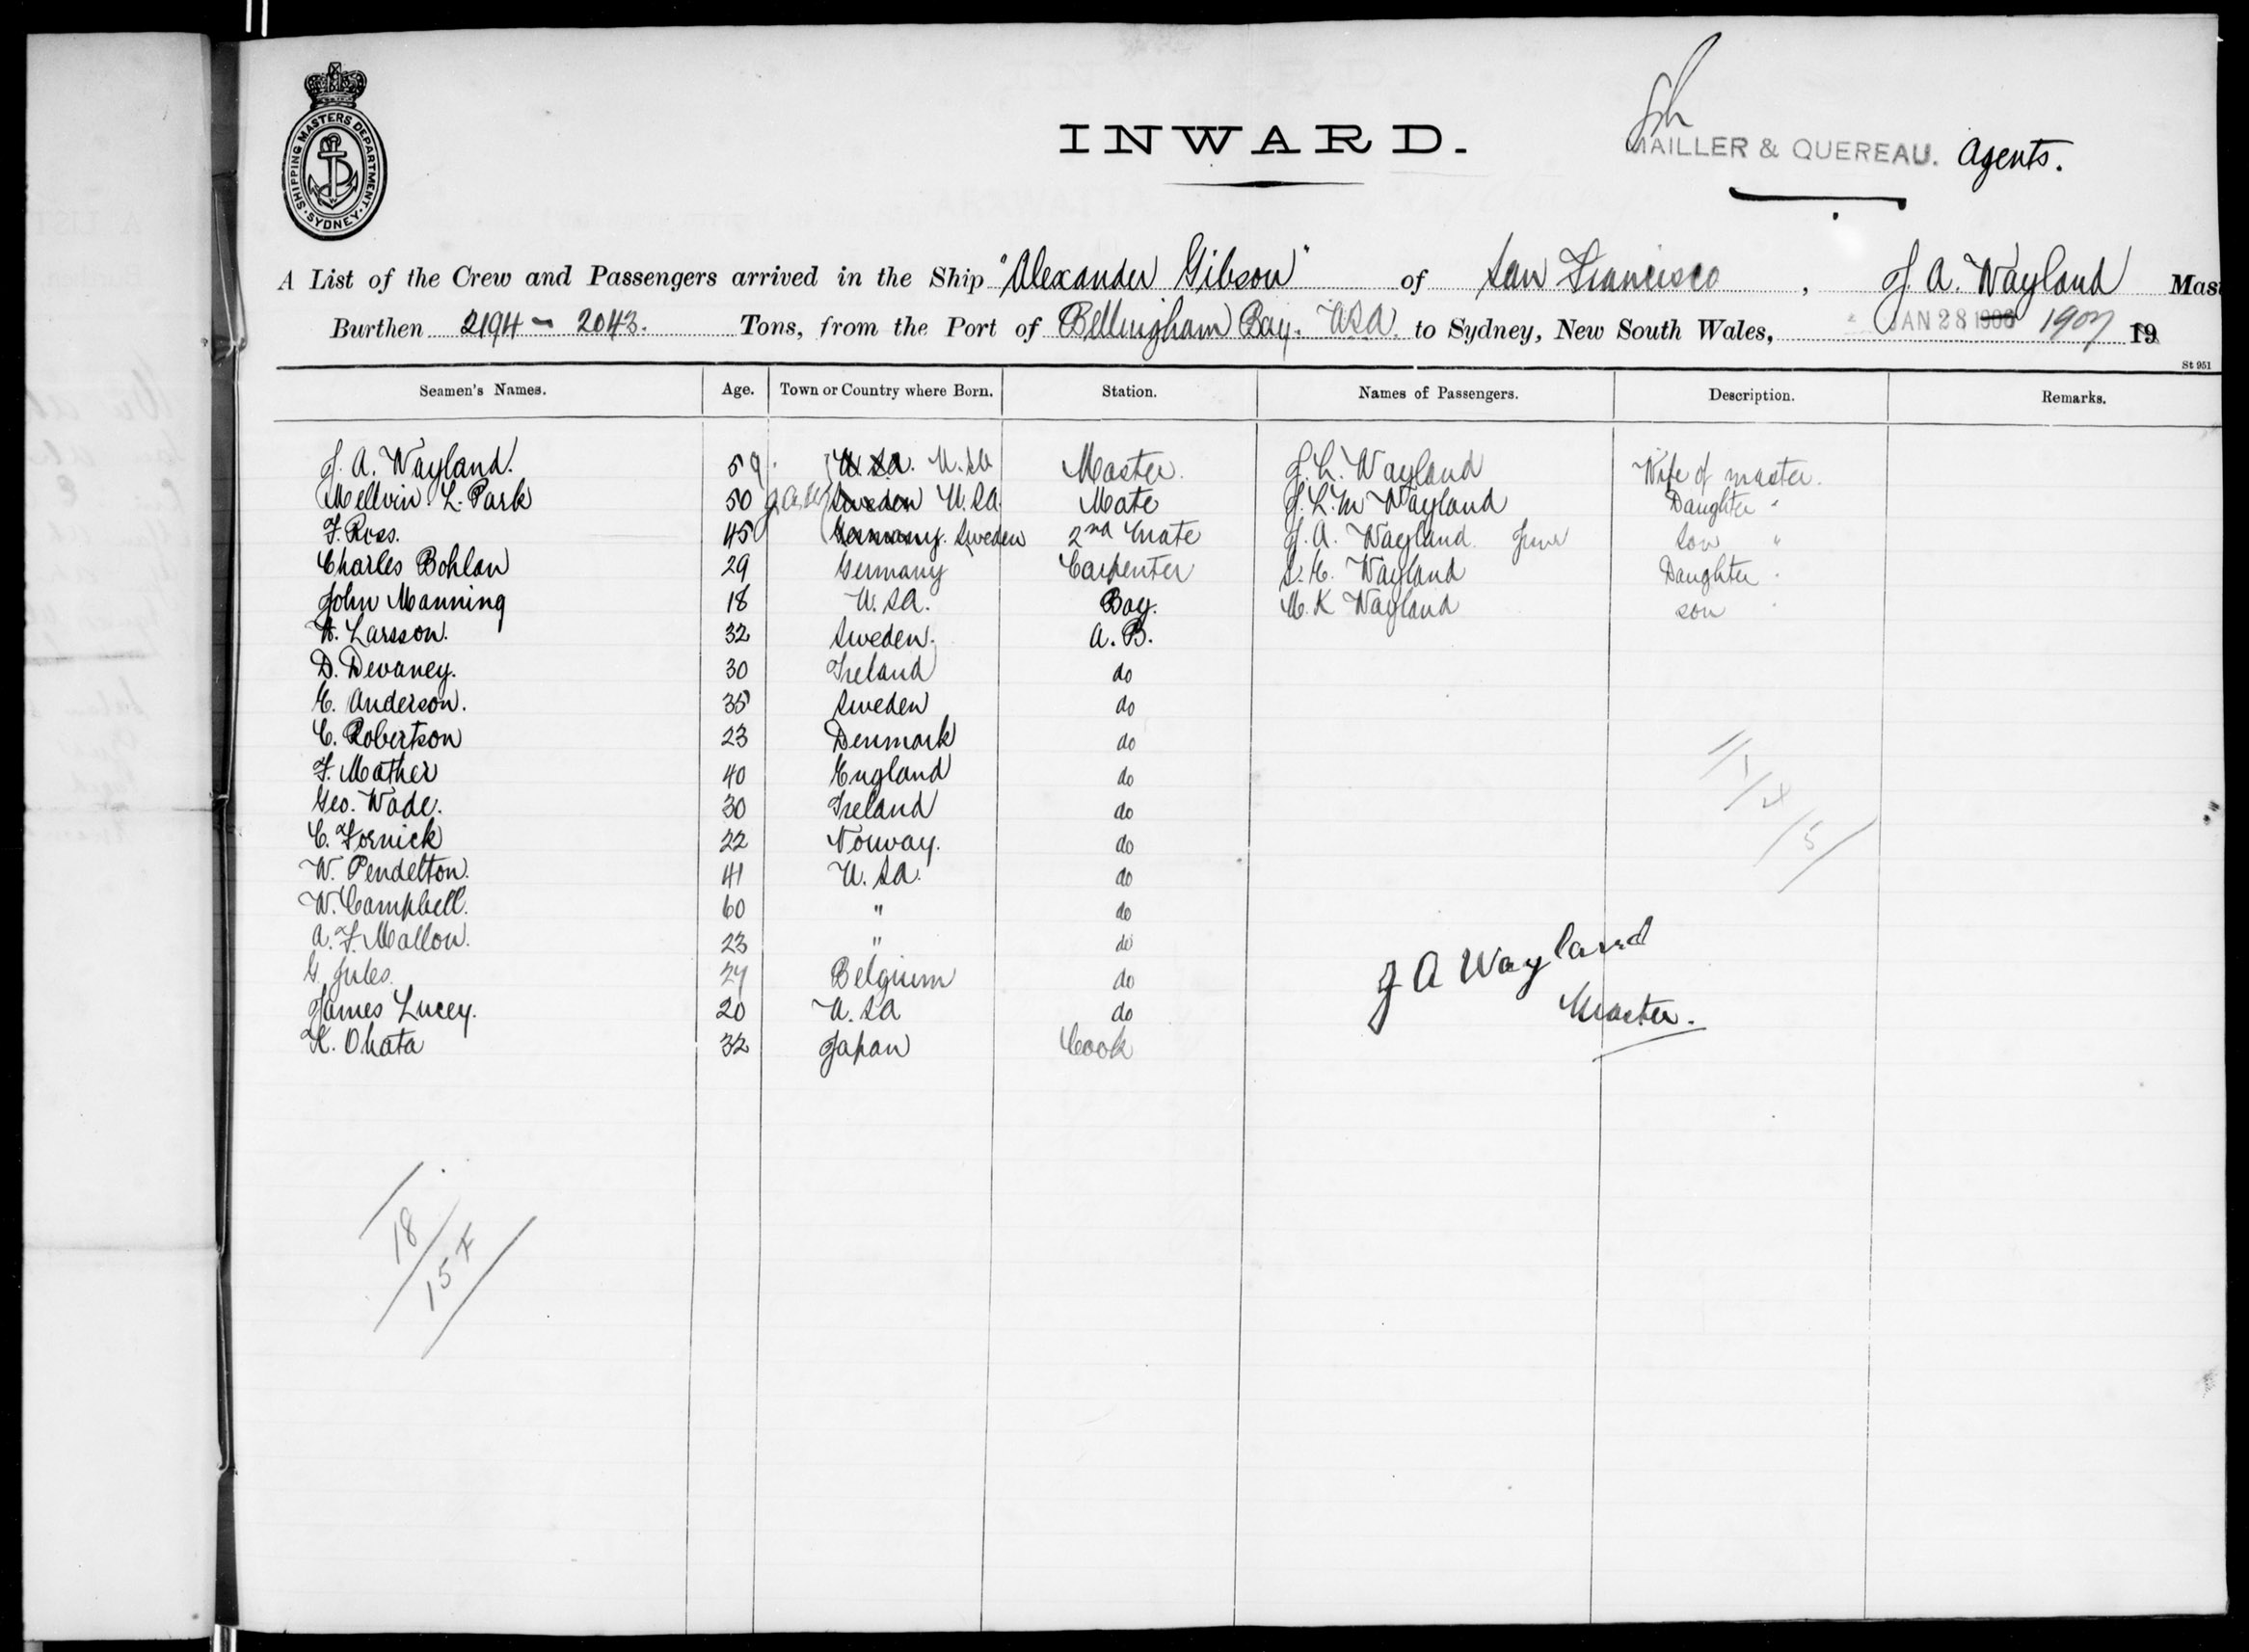 SHIPPING MASTERS DEPARTMENT. SYDNEY.
INWARD.
MAILLER & QUEREAU. Agents.
A List of the Crew and Passengers arrived in the Ship "Alexander Gibson" of San Francisco, J. A. Wayland Mas
Burthen 2194 - 2043. Tons, from the Port of Bellingham Bay. USA. to Sydney, New South Wales, JAN 28 1906 1907 19
St 951
Seamen's Names. Age. Town or Country where Born. Station. Names of Passengers. Description. Remarks.
J. A. Wayland. 59. U.S.A. U.S.A Master. J. L. Wayland Wife of master.
Mellvin L. Park 50 Sweden U.S.A. Mate J. L. M Wayland Daughter "
F. Ross. 45 Germany. Sweden 2nd Mate J. A. Wayland Junr son "
Charles Bohlan 29 Germany Carpenter S. H. Wayland Daughter "
John Manning 18 U.S.A. Boy. M. K Wayland son "
A. Larsson. 32 Sweden. A.B.
D. Devaney. 30 Ireland do
E. Anderson. 35 Sweden do
C. Robertson 23 Denmark do
F. Mather 40 England do
Geo. Wade. 30 Ireland do
C. Fornick 22 Norway. do
W. Pendelton. 41 U.S.A. do
W. Campbell. 60 " do
A. F. Mallon. 23 " do
G. Jules. 24 Belgium do
James Lucey. 20 U.S.A do
K. Ohata 32 Japan Cook
J A Wayland
Master.
18
15 F
5